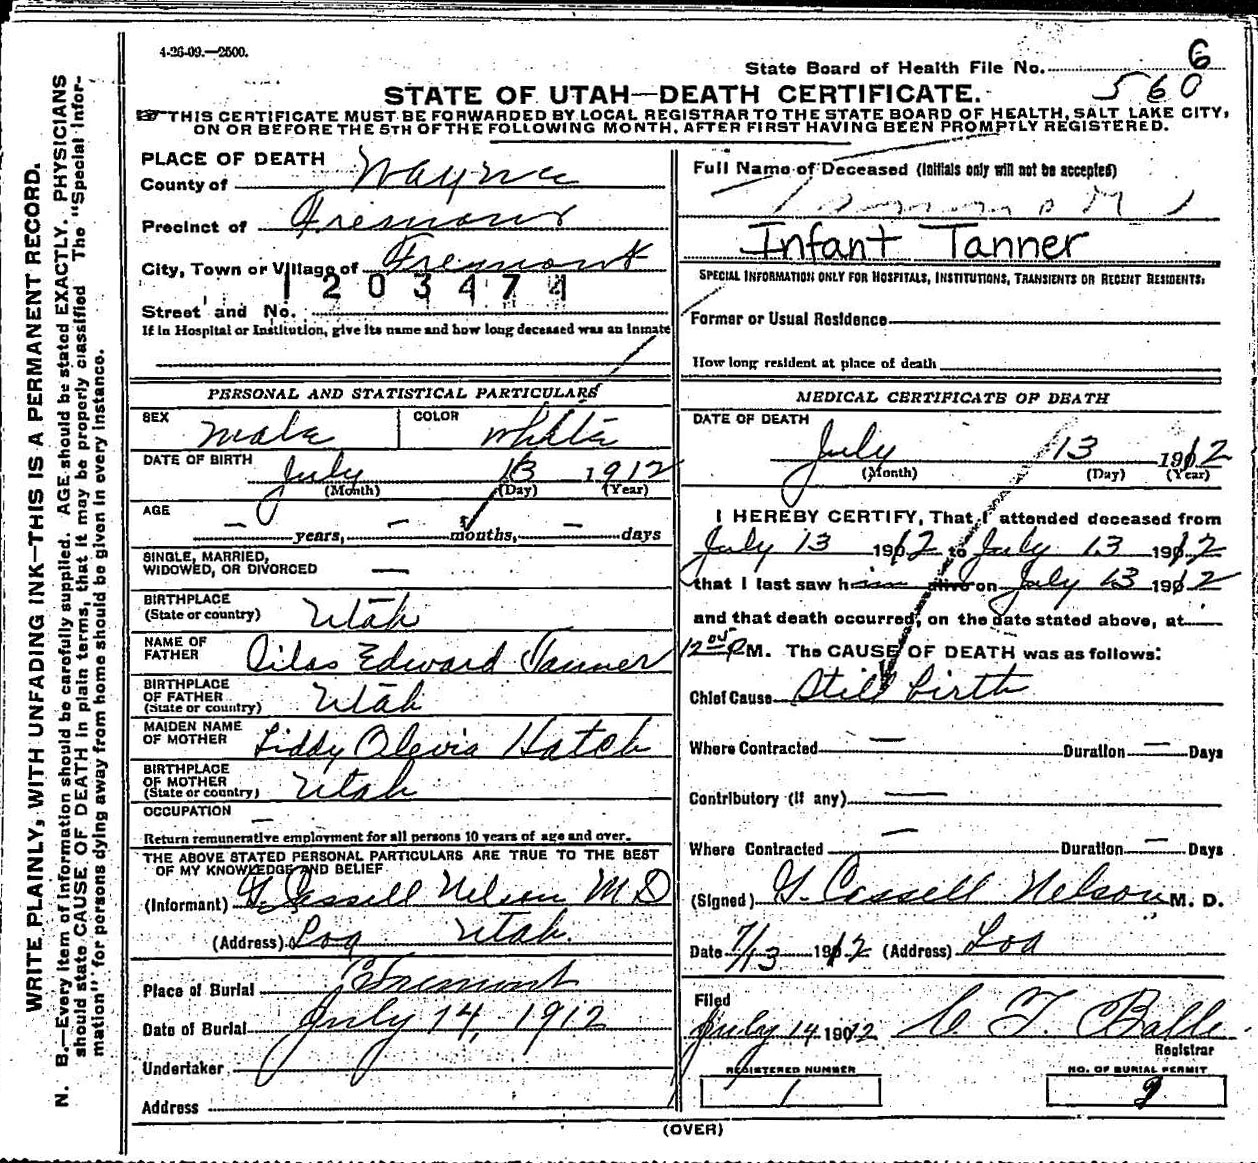 4-26-09.—2500.
State Board of Health File No. 6
560
STATE OF UTAH—DEATH CERTIFICATE.
THIS CERTIFICATE MUST BE FORWARDED BY LOCAL REGISTRAR TO THE STATE BOARD OF HEALTH, SALT LAKE CITY,
ON OR BEFORE THE 5TH OF THE FOLLOWING MONTH, AFTER FIRST HAVING BEEN PROMPTLY REGISTERED.
WRITE PLAINLY, WITH UNFADING INK—THIS IS A PERMANENT RECORD.
N. B.—Every item of information should be carefully supplied. AGE should be stated EXACTLY. PHYSICIANS
should state CAUSE OF DEATH in plain terms, that it may be properly classified The "Special Infor-
mation" for persons dying away from home should be given in every instance.
PLACE OF DEATH
County of Wayne
Precinct of Fremont
City, Town or Village of Fremont
1203474
Street and No.
If in Hospital or Institution, give its name and how long deceased was an inmate
PERSONAL AND STATISTICAL PARTICULARS
SEX male COLOR white
DATE OF BIRTH July 13 1912
(Month) (Day) (Year)
AGE
— years, — months, — days
SINGLE, MARRIED,
WIDOWED, OR DIVORCED —
BIRTHPLACE
(State or country) Utah
NAME OF
FATHER Silas Edward Tanner
BIRTHPLACE
OF FATHER
(State or country) Utah
MAIDEN NAME
OF MOTHER Liddy Olevia Hatch
BIRTHPLACE
OF MOTHER
(State or country) Utah
OCCUPATION —
Return remunerative employment for all persons 10 years of age and over.
THE ABOVE STATED PERSONAL PARTICULARS ARE TRUE TO THE BEST
OF MY KNOWLEDGE AND BELIEF
(Informant) G. Cassell Nelson M D
(Address) Loa Utah.
Place of Burial Fremont
Date of Burial July 14, 1912
Undertaker
Address
Full Name of Deceased (Initials only will not be accepted)
Infant Tanner
SPECIAL INFORMATION ONLY FOR HOSPITALS, INSTITUTIONS, TRANSIENTS OR RECENT RESIDENTS:
Former or Usual Residence
How long resident at place of death
MEDICAL CERTIFICATE OF DEATH
DATE OF DEATH
July 13 1912
(Month) (Day) (Year)
I HEREBY CERTIFY, That I attended deceased from
July 13 1912 to July 13 1912
that I last saw him alive on July 13 1912
and that death occurred, on the date stated above, at
12 05 P M. The CAUSE OF DEATH was as follows:
Chief Cause Still birth
Where Contracted — Duration — Days
Contributory (if any) —
Where Contracted — Duration — Days
(Signed) G. Cassell Nelson M. D.
Date 7/13 1912 (Address) Loa
Filed
July 14 1912 C T. Balle
Registrar
REGISTERED NUMBER
1
NO. OF BURIAL PERMIT
(OVER)